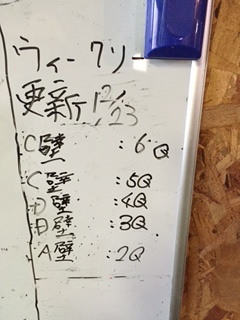 ウィークリー
更新12/23
C壁:6Q
C壁:5Q
D壁:4Q
B壁:3Q
A壁:2Q